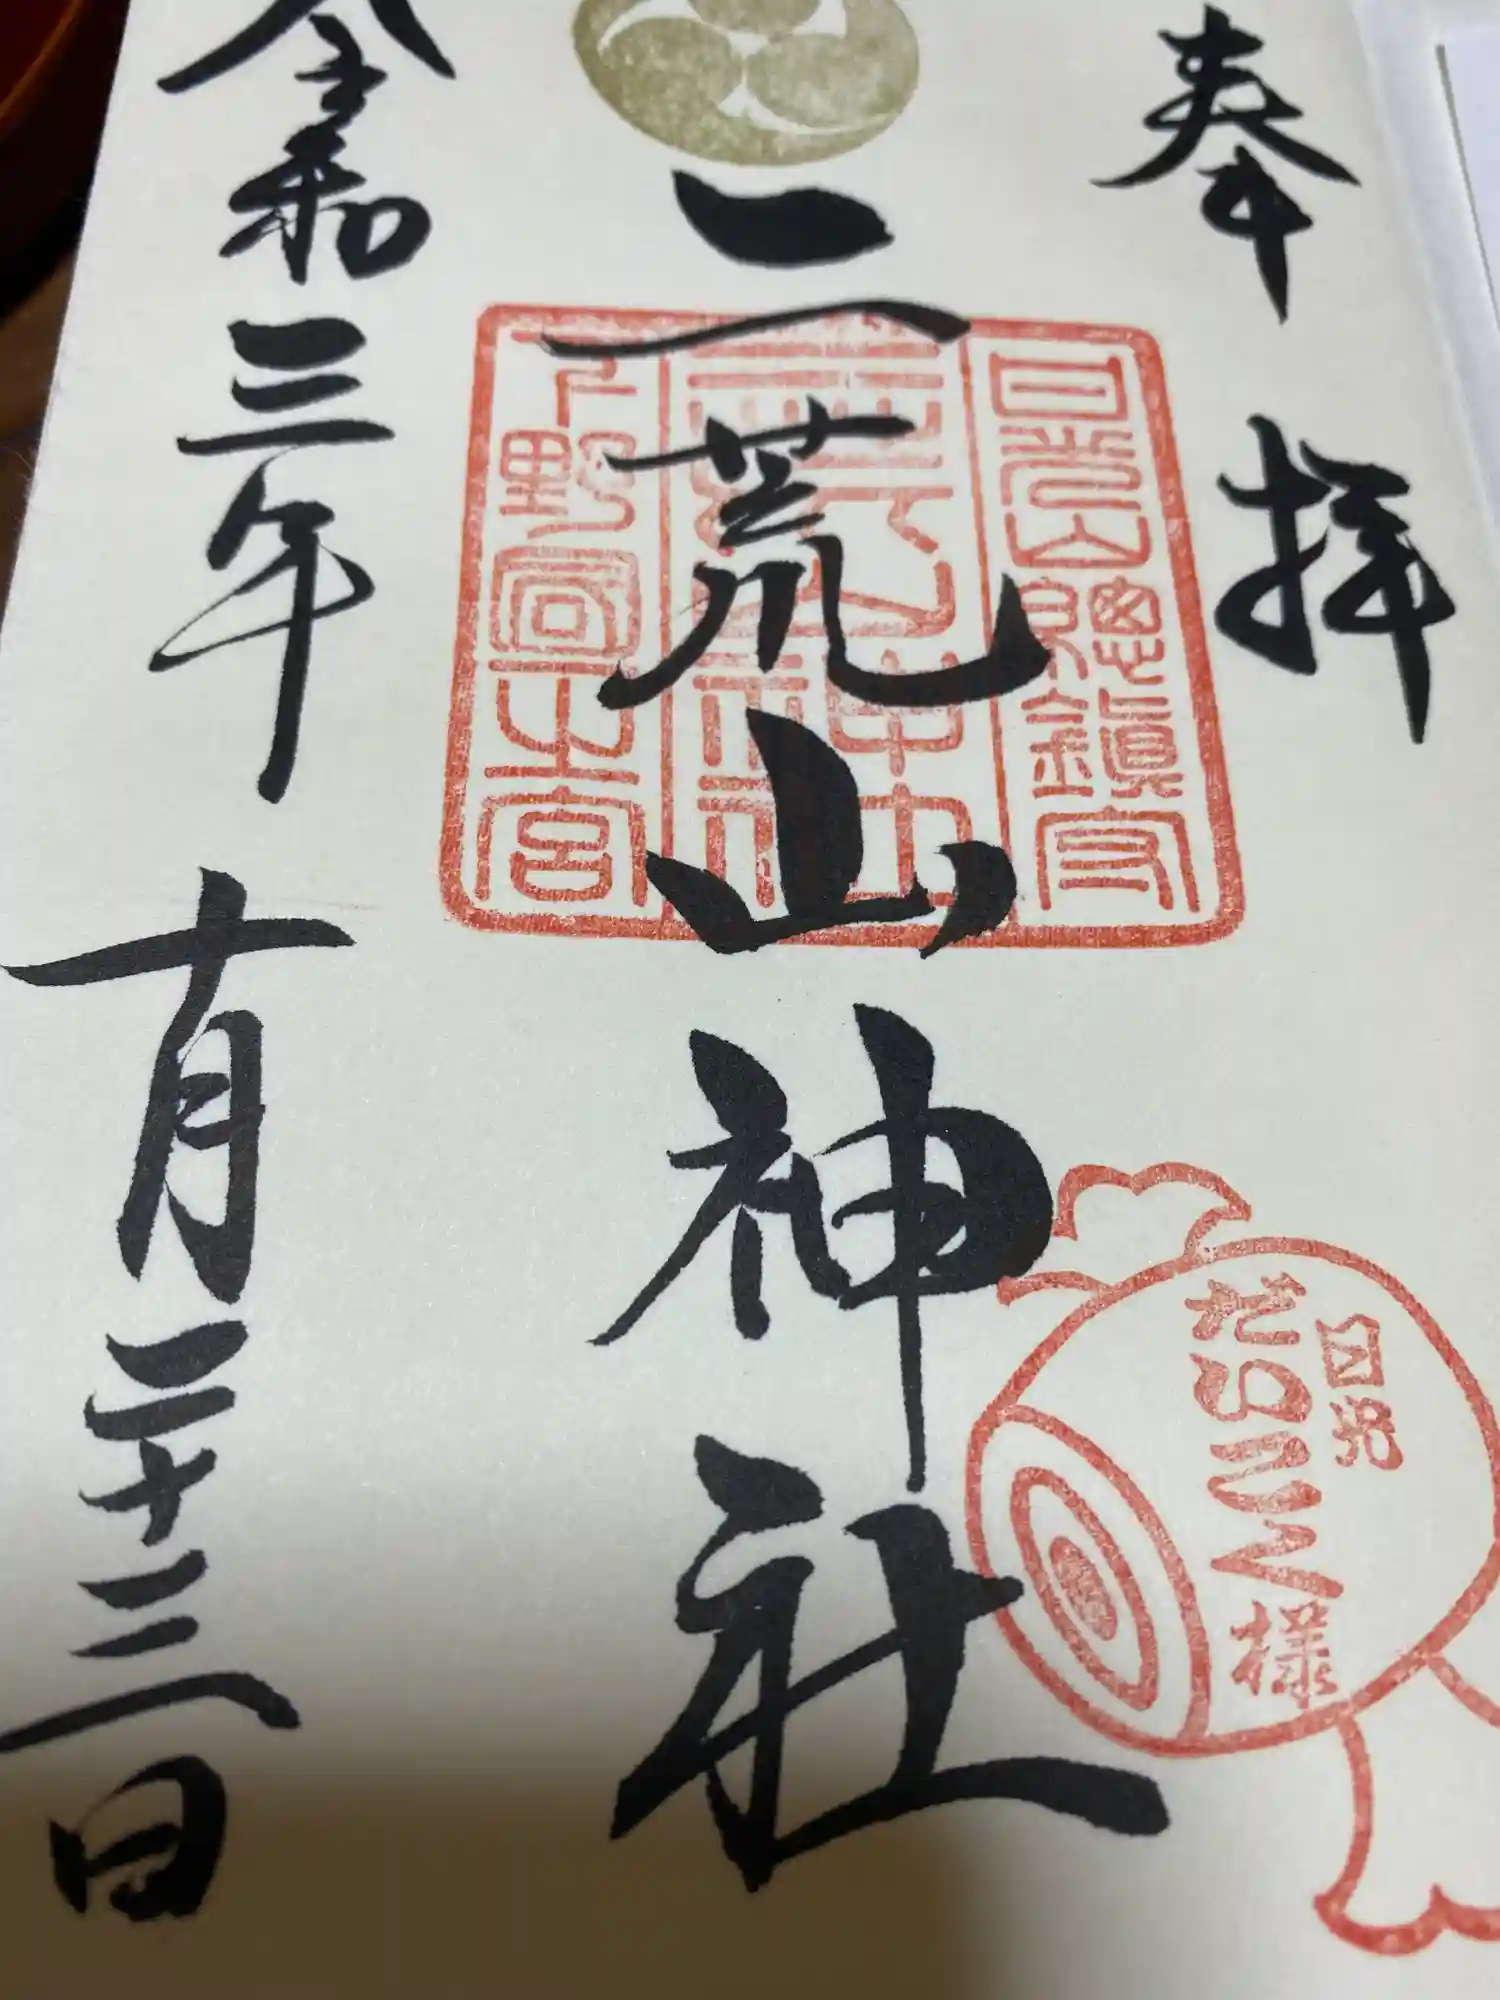 奉拝
日光山總鎮守
二荒山神社
下野國一之宮
令和三年 十月二十三日
日光
だいこく様